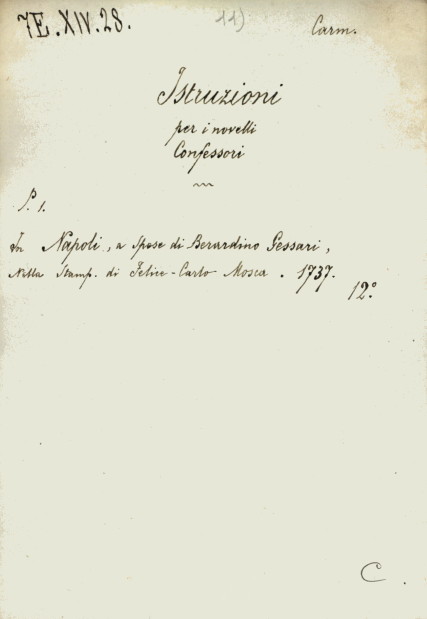 7E.XIV.28. 11) Carm.
Istruzioni
per i novelli
Confessori
P. 1.
In Napoli, a spese di Berardino Gessari,
Nella Stamp. di Felice-Carlo Mosca. 1737.
12.º
C